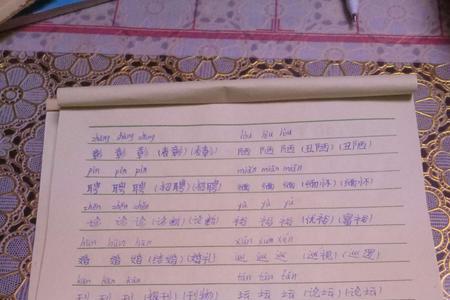 zhāng zhāng zhāng lòu lòu lòu
彰 彰 彰 (表彰) (表彰) 陋 陋 陋 (丑陋) (丑陋)
pìn pìn pìn miǎn miǎn miǎn
聘 聘 聘 (招聘) (招聘) 缅 缅 缅 (缅怀) (缅怀)
zhěn zhěn zhěn yù yù yù
诊 诊 诊 (诊断) (诊断) 裕 裕 裕 (优裕) (富裕)
hūn hūn hūn xún xún xún
婚 婚 婚 (结婚) (婚礼) 巡 巡 巡 (巡视) (巡逻)
kān kān kān tán tán tán
刊 刊 刊 (报刊) (刊物) 坛 坛 坛 (论坛) (论坛)